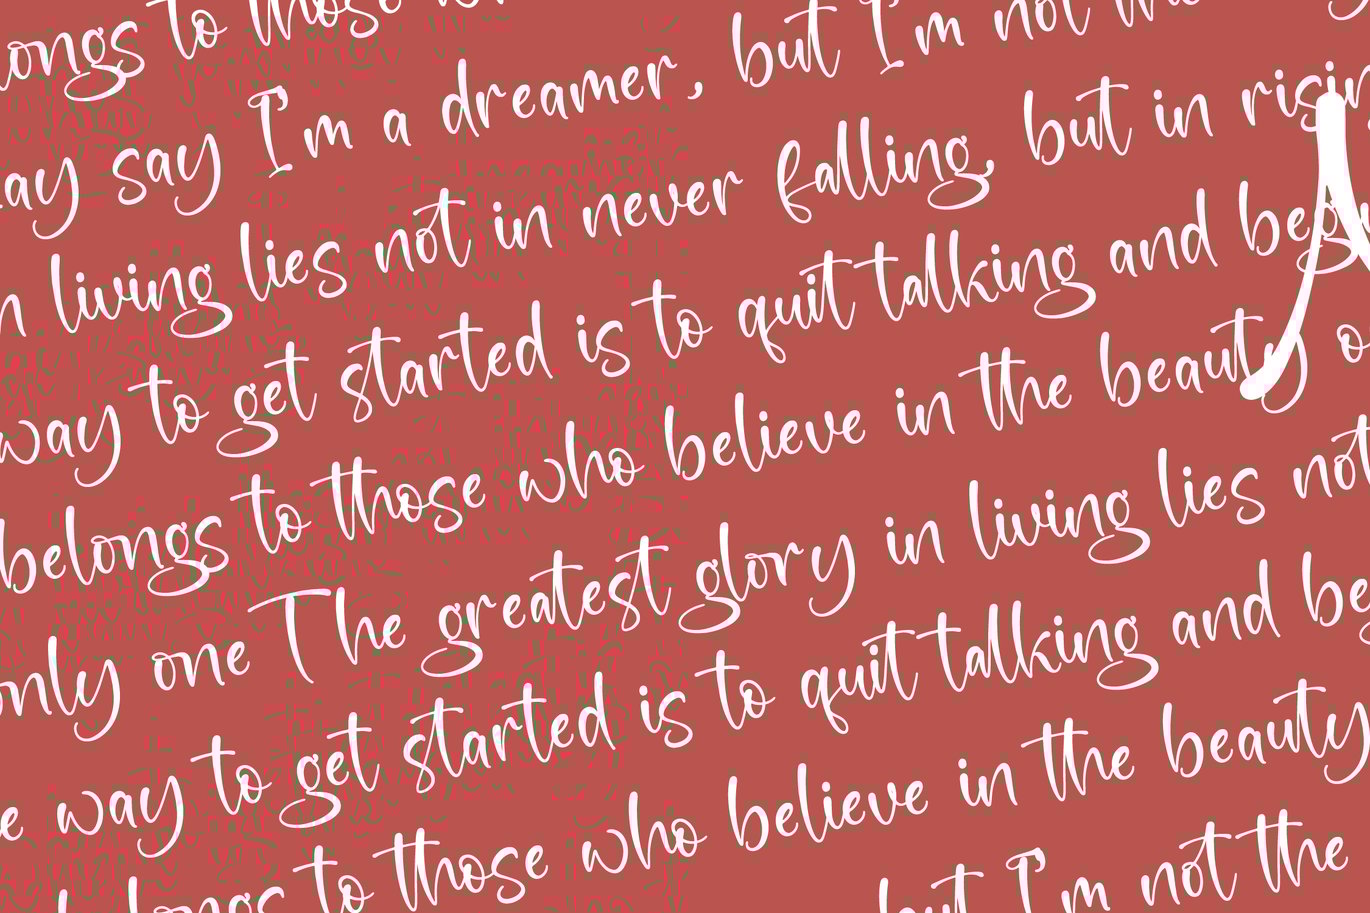 to those
say I'm a dreamer, but I'm not
living lies not in never falling, but in
way to get started is to quit talking and
belongs to those who believe in the beauty
only one The greatest glory in living lies not
way to get started is to quit talking and
to those who believe in the beauty
but I'm not the